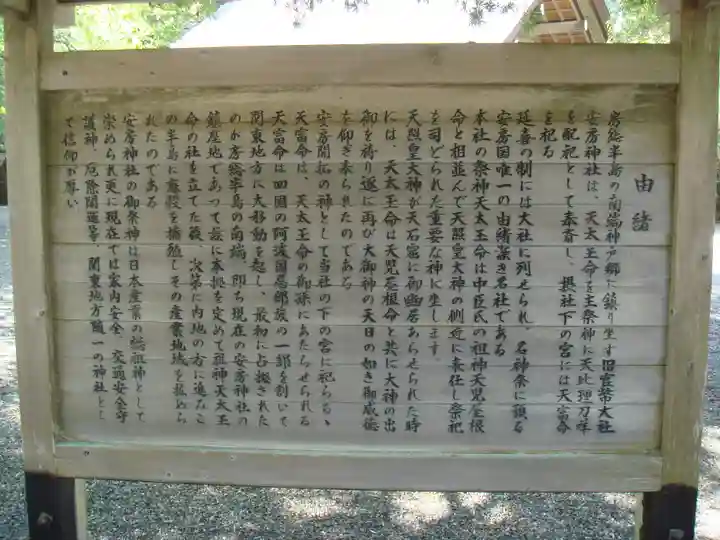 由緒
房総半島の南端神戸郷に鎮り坐す旧官幣大社
安房神社は、天太玉命を主祭神に天比理刀咩命
を配祀として奉斎し、摂社下の宮には天富命
を祀る
延喜の制には大社に列せられ、名神祭に預る
安房国唯一の由緒深き名社である
本社の祭神天太玉命は中臣氏の祖神天児屋根
命と相並んで天照皇大神の側近に奉仕し祭祀
を司どられた重要な神に坐します
天照皇大神が天石窟に御幽居あらせられた時
には、天太玉命は天児屋根命と共に大神の出
御を祈り遂に再び大御神の天日の如き御威徳
を仰ぎ奉られたのである
安房開拓の神として当社の下の宮に祀らるゝ
天富命は、天太玉命の御孫にあたらせられる
天富命は四国の阿波国忌部族の一部を割いて
関東地方に大移動を起し、最初に占拠された
のが房総半島の南端、即ち現在の安房神社の
鎮座地であって茲に本拠を定めて祖神天太玉
命の社を立てた後、次第に内地の方に進みこ
の半島に麻穀を播殖しその産業地域を拡めら
れたのである
安房神社の御祭神は日本産業の総祖神として
崇められ更に現在では家内安全、交通安全守
護神、厄除開運等、関東地方随一の神社とし
て信仰が厚い